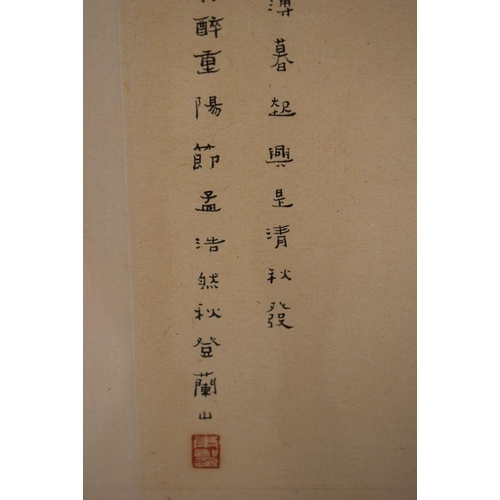 薄暮起興是清秋發
醉重陽節孟浩然秋登蘭山